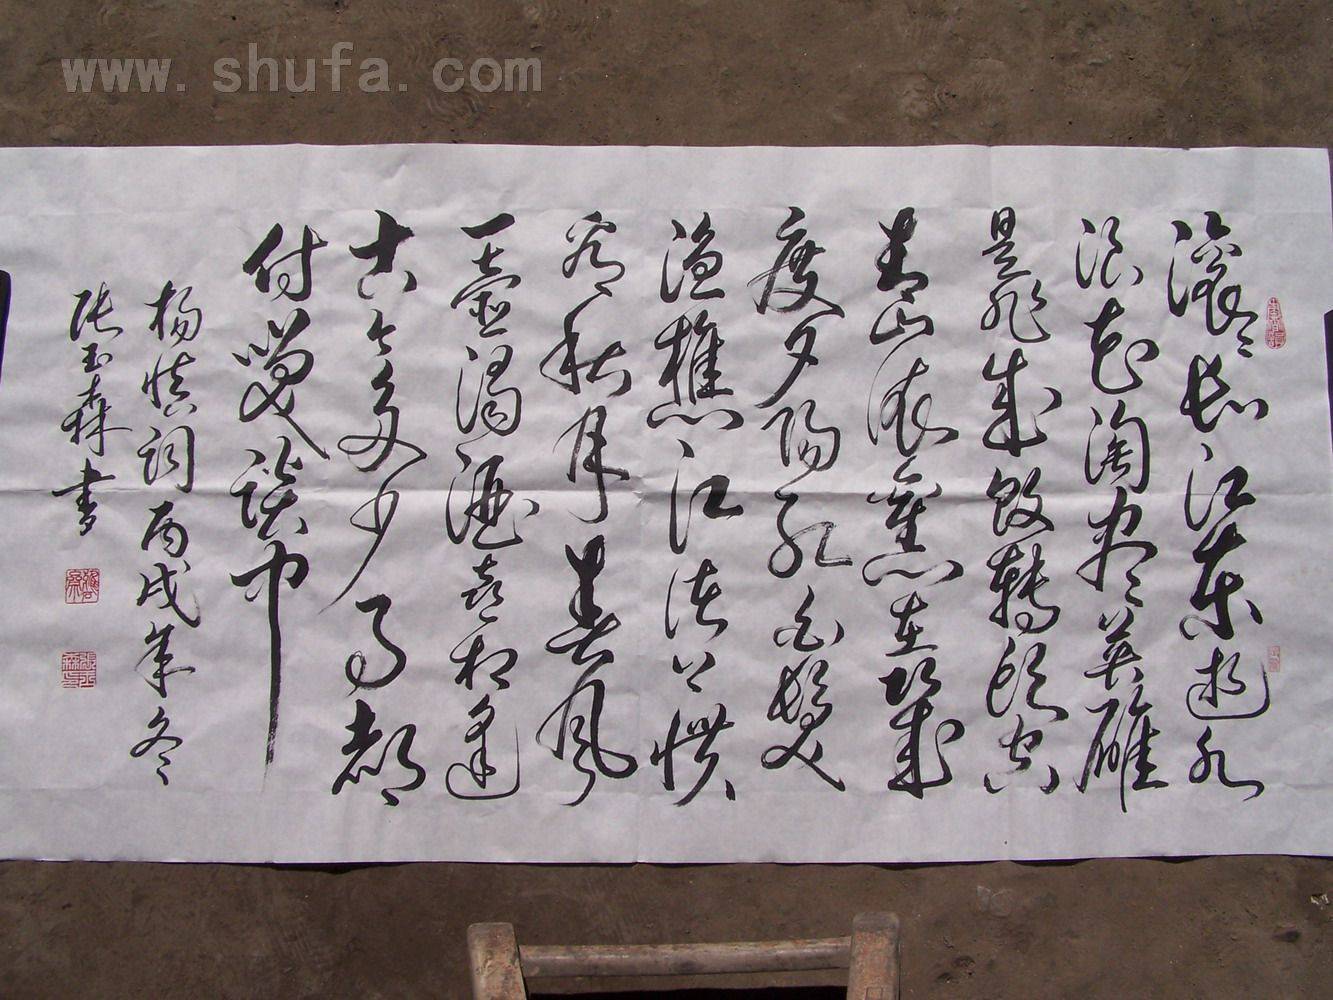 www.shufa.com
滚滚长江东逝水
浪花淘尽英雄
是非成败转头空
青山依旧在几
度夕阳红白发
渔樵江渚上惯
看秋月春风
一壶浊酒喜相逢
古今多少事都
付笑谈中
杨慎词丙戌年冬
张玉森书